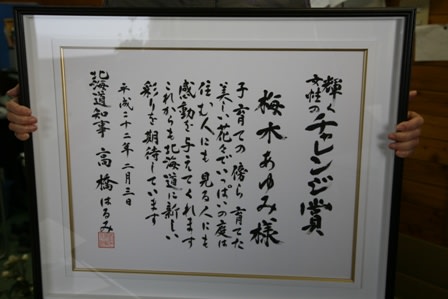 輝く
女性のチャレンジ賞
梅木あゆみ様
子育ての傍ら育てた
美しい花々でいっぱいの庭は
住む人にも見る人にも
感動を与えてくれます
これからも北海道に新しい
彩りを期待しています
平成二十二年二月三日
北海道知事 高橋はるみ